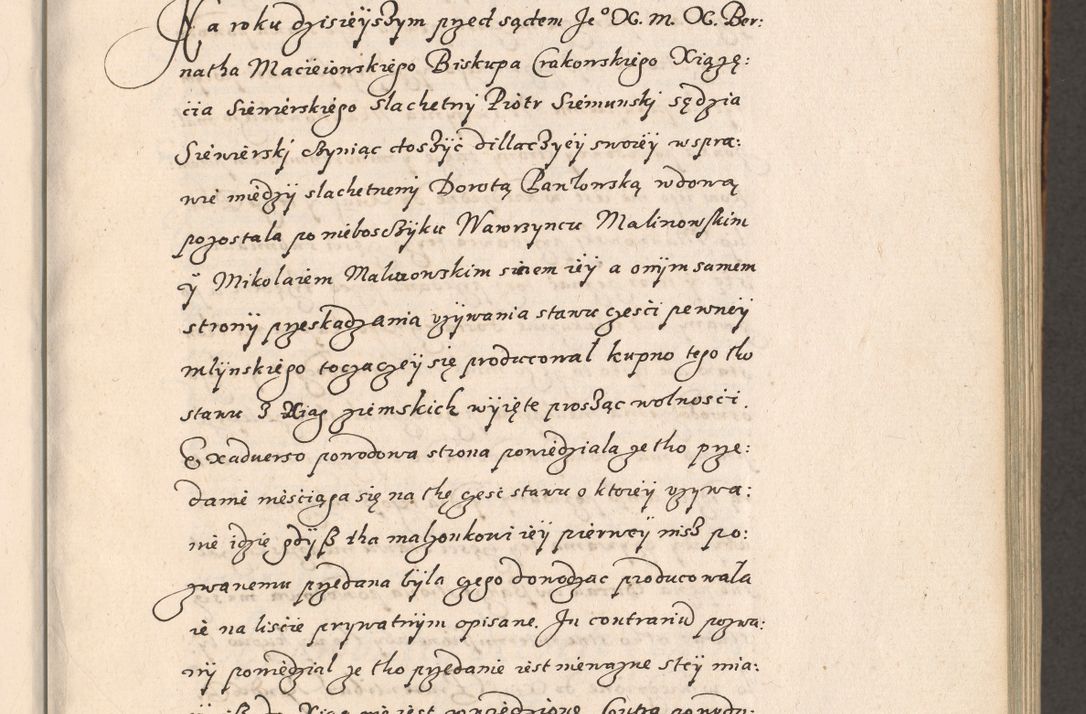 Na roku dzisieÿszym przed sądem Je° X. m. X. Ber:
natha Macieiowskiego Biskupa Crakowskiego Xiążę:
cia Siewierskiego slachetny Piotr Siemunskj sędzia
Siewierskj czyniąc doszÿć dillaczyeÿ swoieÿ w spra:
wie międzÿ slachetnemi Dorotą Pawłowską wdową
pozostala po nieboszczÿku Wawrzyncu Malinowskim
ÿ Mikolaiem Malinowskim sinem ieÿ a onÿm samem
stronÿ przeskadzania vzÿwania stawu częsci pewneÿ
młÿnskiego toczączeÿ się producowal kupno tego tho
stawu z Xiąg ziemskich wÿięte prosząc wolnosci.
Exaduerso powodowa strona powiedziala ze tho prze:
danie niesciąga się na thę częsc stawu o ktoreÿ vzywa:
nie idzie gdÿß tha malzonkowi ieÿ pierweÿ nisz po:
zwanemu przedana bÿla czego dowodząc producowala
ie na liscie prywatnÿm opisane. In contrariu pozwa:
nÿ powiedzial ze tho przedanie iest niewazne steÿ mia: